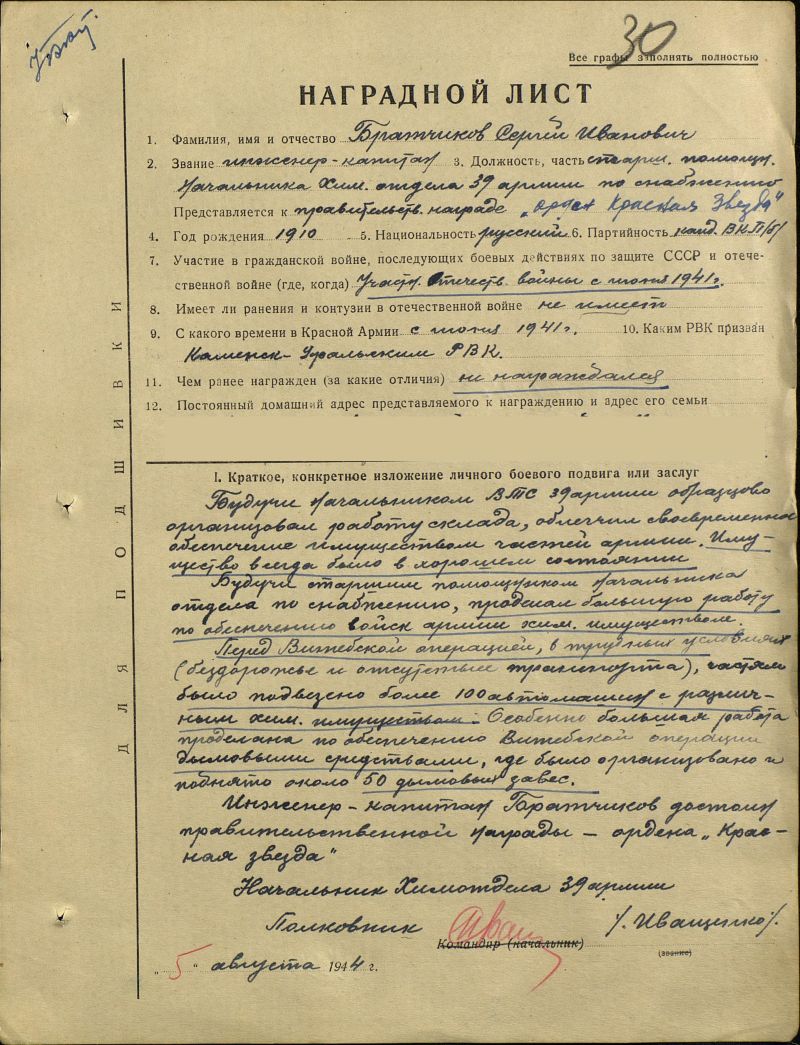 30
Все графы заполнять полностью
НАГРАДНОЙ ЛИСТ
1. Фамилия, имя и отчество Братчиков Сергей Иванович
2. Звание инженер-капитан 3. Должность, часть старш. помощн.
начальника хим. отдела 39 армии по снабжению
Представляется к правительств. награде „орден Красная Звезда"
4. Год рождения 1910 5. Национальность русский 6. Партийность канд. ВКП/б/
7. Участие в гражданской войне, последующих боевых действиях по защите СССР и отече-
ственной войне (где, когда) Участ. Отечеств. войны с июня 1941 г.
8. Имеет ли ранения и контузии в отечественной войне не имеет
9. С какого времени в Красной Армии с июня 1941 г. 10. Каким РВК призван
Каменск-Уральским РВК.
11. Чем ранее награжден (за какие отличия) не награждался
12. Постоянный домашний адрес представляемого к награждению и адрес его семьи
I. Краткое, конкретное изложение личного боевого подвига или заслуг
Будучи начальником ВТС 39 армии образцово
организовал работу склада, облегчил своевременное
обеспечение имуществом частей армии. Иму-
щество всегда было в хорошем состоянии
Будучи старшим помощником начальника
отдела по снабжению, проделал большую работу
по обеспечению войск армии хим. имуществом.
Перед Витебской операцией, в трудных условиях
(бездорожье и отсутствие транспорта), частям
было подвезено более 100 автомашин с различ-
ным хим. имуществом. Особенно большая работа
проделана по обеспечению Витебской операции
дымовыми средствами, где было организовано и
поднято около 50 дымовых завес.
Инженер-капитан Братчиков достоин
правительственной награды – ордена „Крас-
ная звезда"
Начальник Химотдела 39 армии
Полковник /. Иващенко /.
Командир (начальник)
(звание)
„5" августа 1944 г.
ДЛЯ ПОДШИВКИ